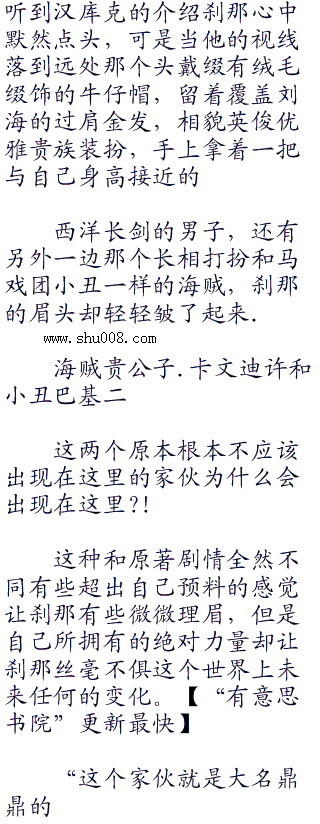 听到汉库克的介绍刹那心中
默然点头，可是当他的视线
落到远处那个头戴缀有绒毛
缀饰的牛仔帽，留着覆盖刘
海的过肩金发，相貌英俊优
雅贵族装扮，手上拿着一把
与自己身高接近的
西洋长剑的男子，还有
另外一边那个长相打扮和马
戏团小丑一样的海贼，刹那
的眉头却轻轻皱了起来.
www.shu008.com
海贼贵公子.卡文迪许和
小丑巴基二
这两个原本根本不应该
出现在这里的家伙为什么会
出现在这里?!
这种和原著剧情全然不
同有些超出自己预料的感觉
让刹那有些微微理眉，但是
自己所拥有的绝对力量却让
刹那丝毫不俱这个世界上未
来任何的变化。【“有意思
书院”更新最快】
“这个家伙就是大名鼎
鼎的